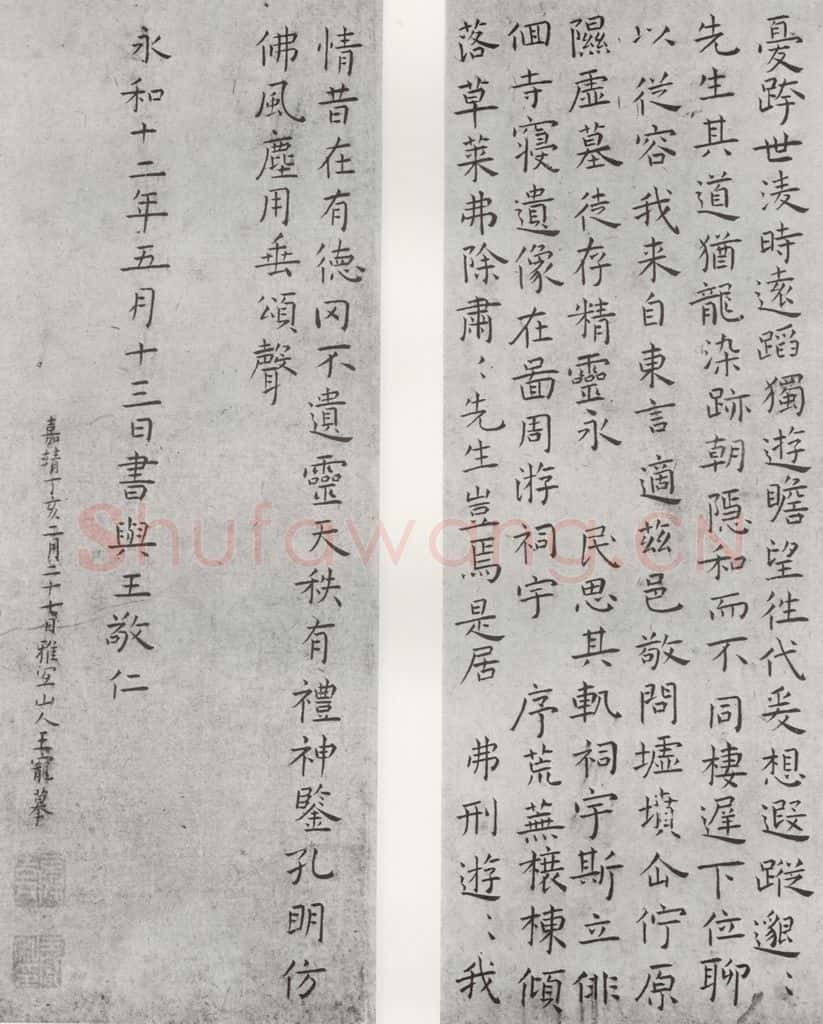 憂跨世淩時遠蹈獨遊瞻望往代爰想遐蹤邈〻
先生其道猶龍染跡朝隱和而不同棲遲下位聊
以從容我来自東言適茲邑敬問墟墳企佇原
隰虛墓徒存精靈永 民思其軌祠宇斯立俳
佪寺寢遺像在啚周游祠宇 序荒蕪榱棟傾
落草萊弗除肅〻先生豈焉是居 弗刑遊〻我
情昔在有德罔不遺靈天秩有禮神鑒孔明仿
佛風塵用垂頌聲
永和十二年五月十三日書與王敬仁
嘉靖丁亥二月二十七日雅宜山人王寵摹
Shufawang.CN